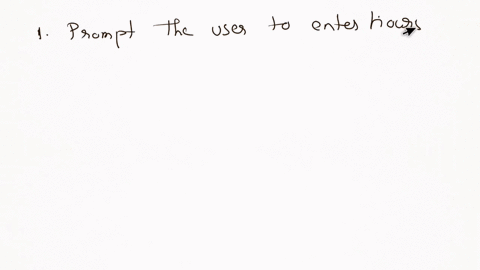 1. Prompt the user to enter hours